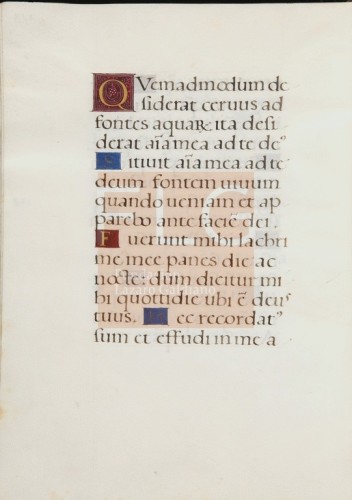 Quemadmodum de
siderat ceruus ad
fontes aquaꝝ ita desi
derat aīa mea ad te deꝰ
Sitiuit aīa mea ad te
deum fontem uiuum
quando ueniam et ap
parebo ante faciē dei.
Fuerunt mihi lachri
me mee panes die ac
nocte: dum dicitur mi
hi quottidie ubi ē deus
tuus. Hec recordatꝰ
sum et effudi in me a